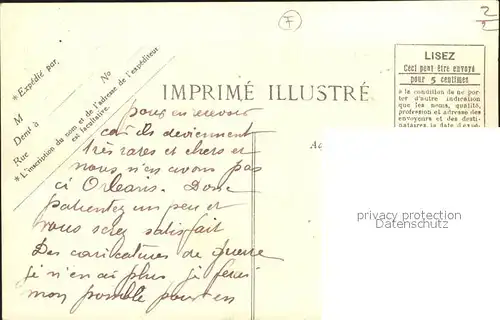 F
2
* Expédié par,
No
M
Demt à
Rue
* L'inscription du nom et de l'adresse de l'expéditeur
est facultative.
IMPRIMÉ ILLUSTRÉ
LISEZ
Ceci peut être envoyé
pour 5 centimes
à la condition de ne por
ter d'autre indication
que les noms, qualité,
profession et adresse des
envoyeurs et des desti-
nataires, la date d'expé-
pour en recevoir
car ils deviennent
très rares et chers et
nous n'en avons pas
ci Orléans. Donc
patientez un peu et
vous serez satisfait
Des caricatures de guerre
je n'en ai plus je ferai
mon possible pour en
privacy protection
Datenschutz